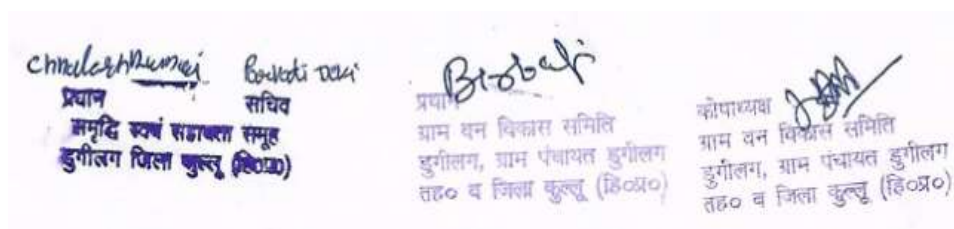 प्रधान सचिव
समृद्धि स्वयं सहायता समूह
डुगीलग जिला कुल्लू (हि०प्र०)
प्रधान
ग्राम वन विकास समिति
डुगीलग, ग्राम पंचायत डुगीलग
तह० व जिला कुल्लू (हि०प्र०)
कोषाध्यक्ष
ग्राम वन विकास समिति
डुगीलग, ग्राम पंचायत डुगीलग
तह० व जिला कुल्लू (हि०प्र०)